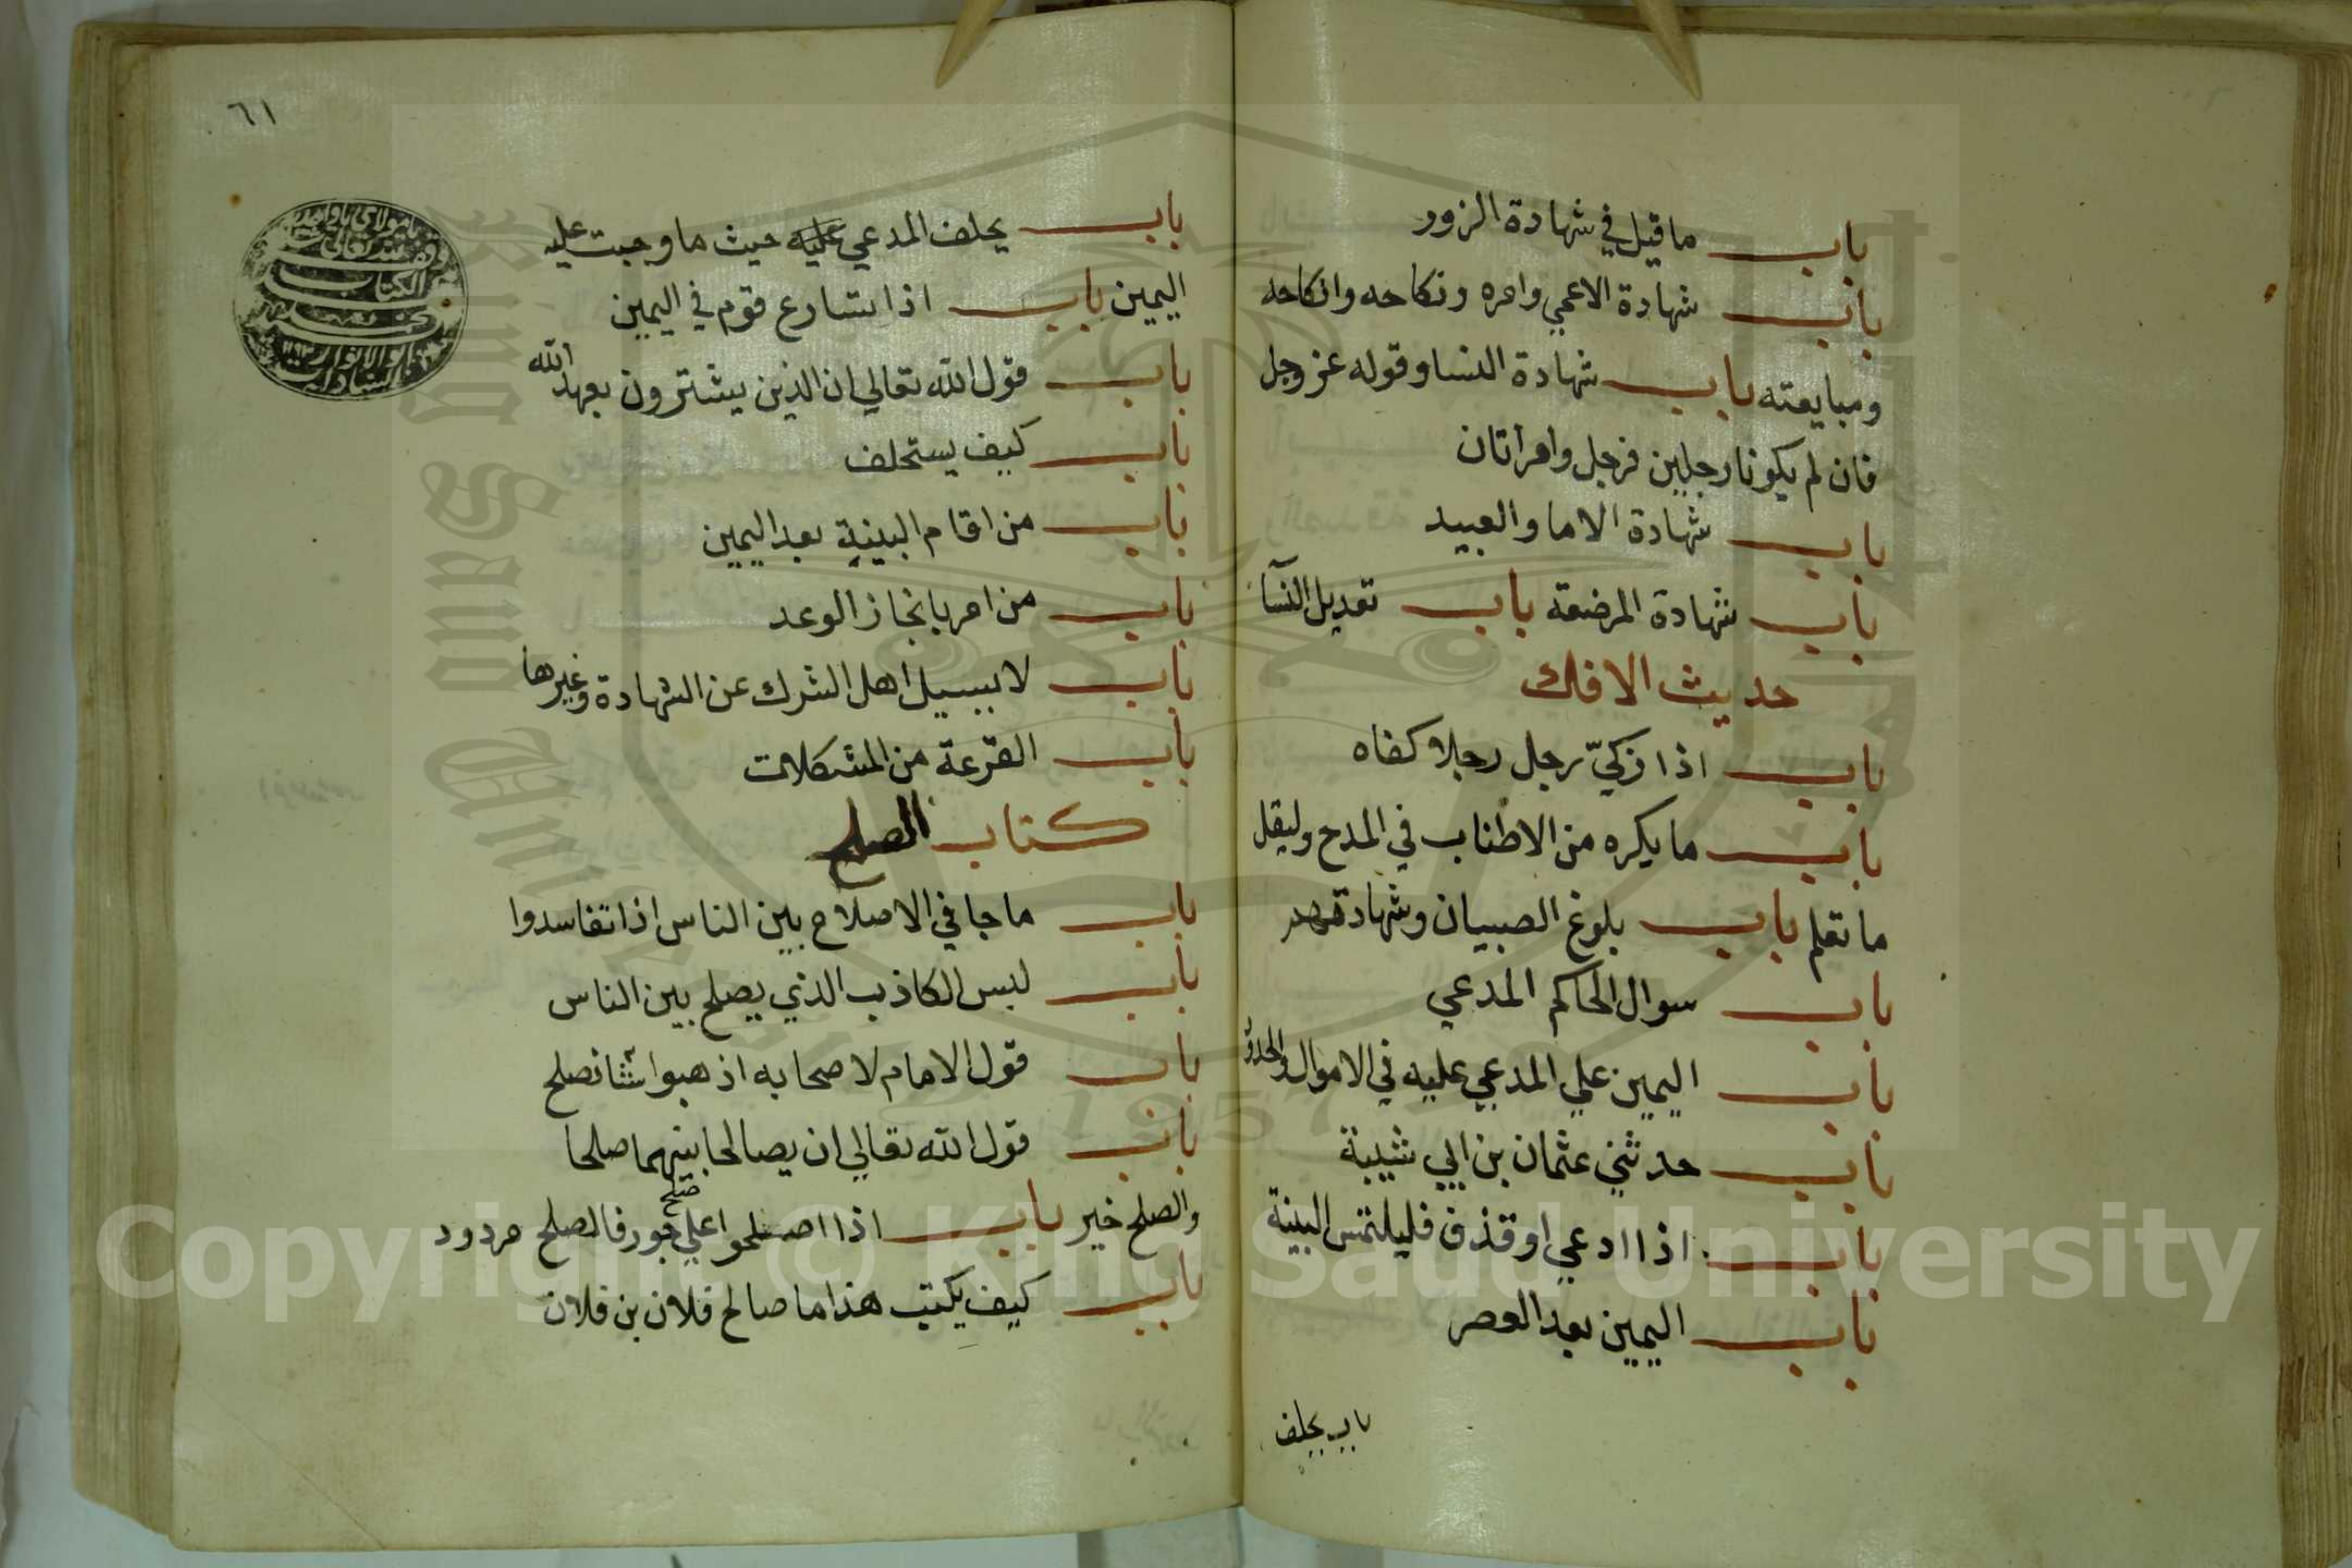 باب ما قيل في شهادة الزور
باب شهادة الاعمي وامره ونكاحه وانكاحه
ومبايعته باب شهادة النسا وقوله عز وجل
فان لم يكونا رجلين فرجل وامرأتان
باب شهادة الاما والعبيد
باب شهادة المرضعة باب تعديل النسآ
حديث الافك
باب اذا زكيّ رجل رجلا كفاه
باب ما يكره من الاطناب في المدح وليقل
ما تعلم باب بلوغ الصبيان وشهادتهم
باب سوال الحاكم المدعي
باب اليمين علي المدعي عليه في الاموال والحدو
باب حدثني عثمان بن ابي شيبة
باب اذا ادعي او قذف فليلتمس البينة
باب اليمين بعد العصر
باب يحلف
٦١
باب يحلف المدعي عليه حيث ما وجبت عليه
اليمين باب اذا تسارع قوم في اليمين
باب قول الله تعالي ان الذين يشترون بعهد الله
باب كيف يستحلف
باب من اقام البينة بعد اليمين
باب من امر بانجاز الوعد
باب لا يسيل اهل الشرك عن الشهادة وغيرها
باب القرعة من المشكلات
كتاب الصلح
باب ما جا في الاصلاح بين الناس اذا تفاسدوا
باب ليس الكاذب الذي يصلح بين الناس
باب قول الامام لاصحابه اذهبوا بنا نصلح
باب قول الله تعالي ان يصالحا بينهما صلحا
والصلح خير باب اذا اصلحوا علي صلح جور فالصلح مردود
باب كيف يكتب هذا ما صالح فلان بن فلان
الكتاب
1957
Copyright © King Saud University